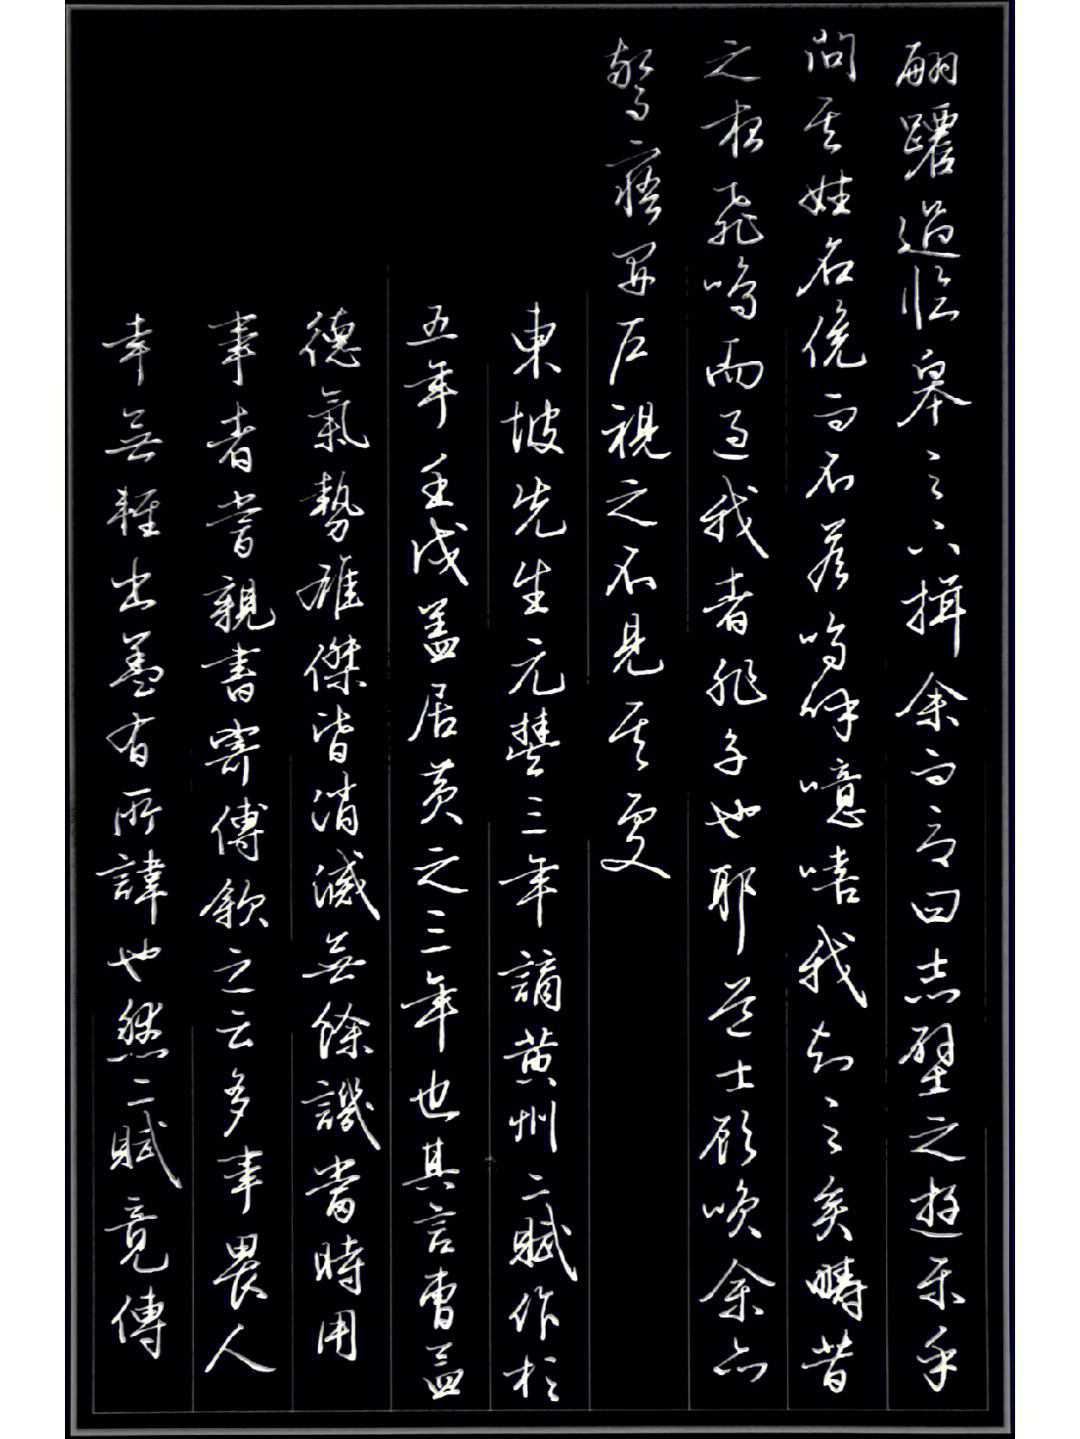 翩躚過臨皋之下揖余而言曰赤壁之遊樂乎
問其姓名俛而不答嗚呼噫嘻我知之矣疇昔
之夜飛鳴而過我者非子也耶道士顧咲余亦
驚寤開戶視之不見其處
東坡先生元豐三年謫黃州二賦作於
五年壬戌蓋居黃之三年也其言曹孟
德氣勢雄傑皆消滅無餘譏當時用
事者嘗親書寄傅欽之云多事畏人
幸無輕出蓋有所諱也然二賦竟傳